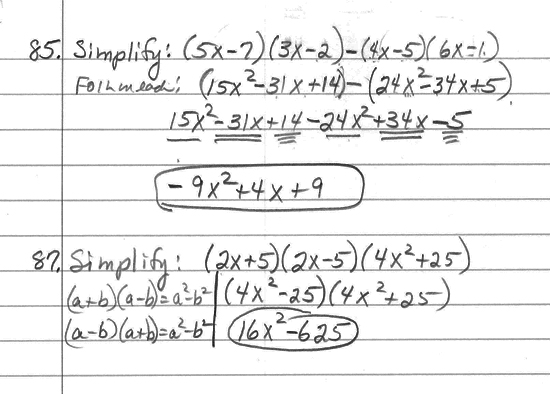 85. Simplify: (5x-7)(3x-2)-(4x-5)(6x-1)
FOIL each: (15x²-31x+14)-(24x²-34x+5)
15x²-31x+14-24x²+34x-5
-9x²+4x+9
87. Simplify: (2x+5)(2x-5)(4x²+25)
(a+b)(a-b)=a²-b² (4x²-25)(4x²+25)
(a-b)(a+b)=a²-b² 16x²-625